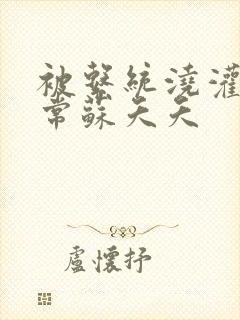 被繫統澆灌
常蘇夭夭
盧懷抒